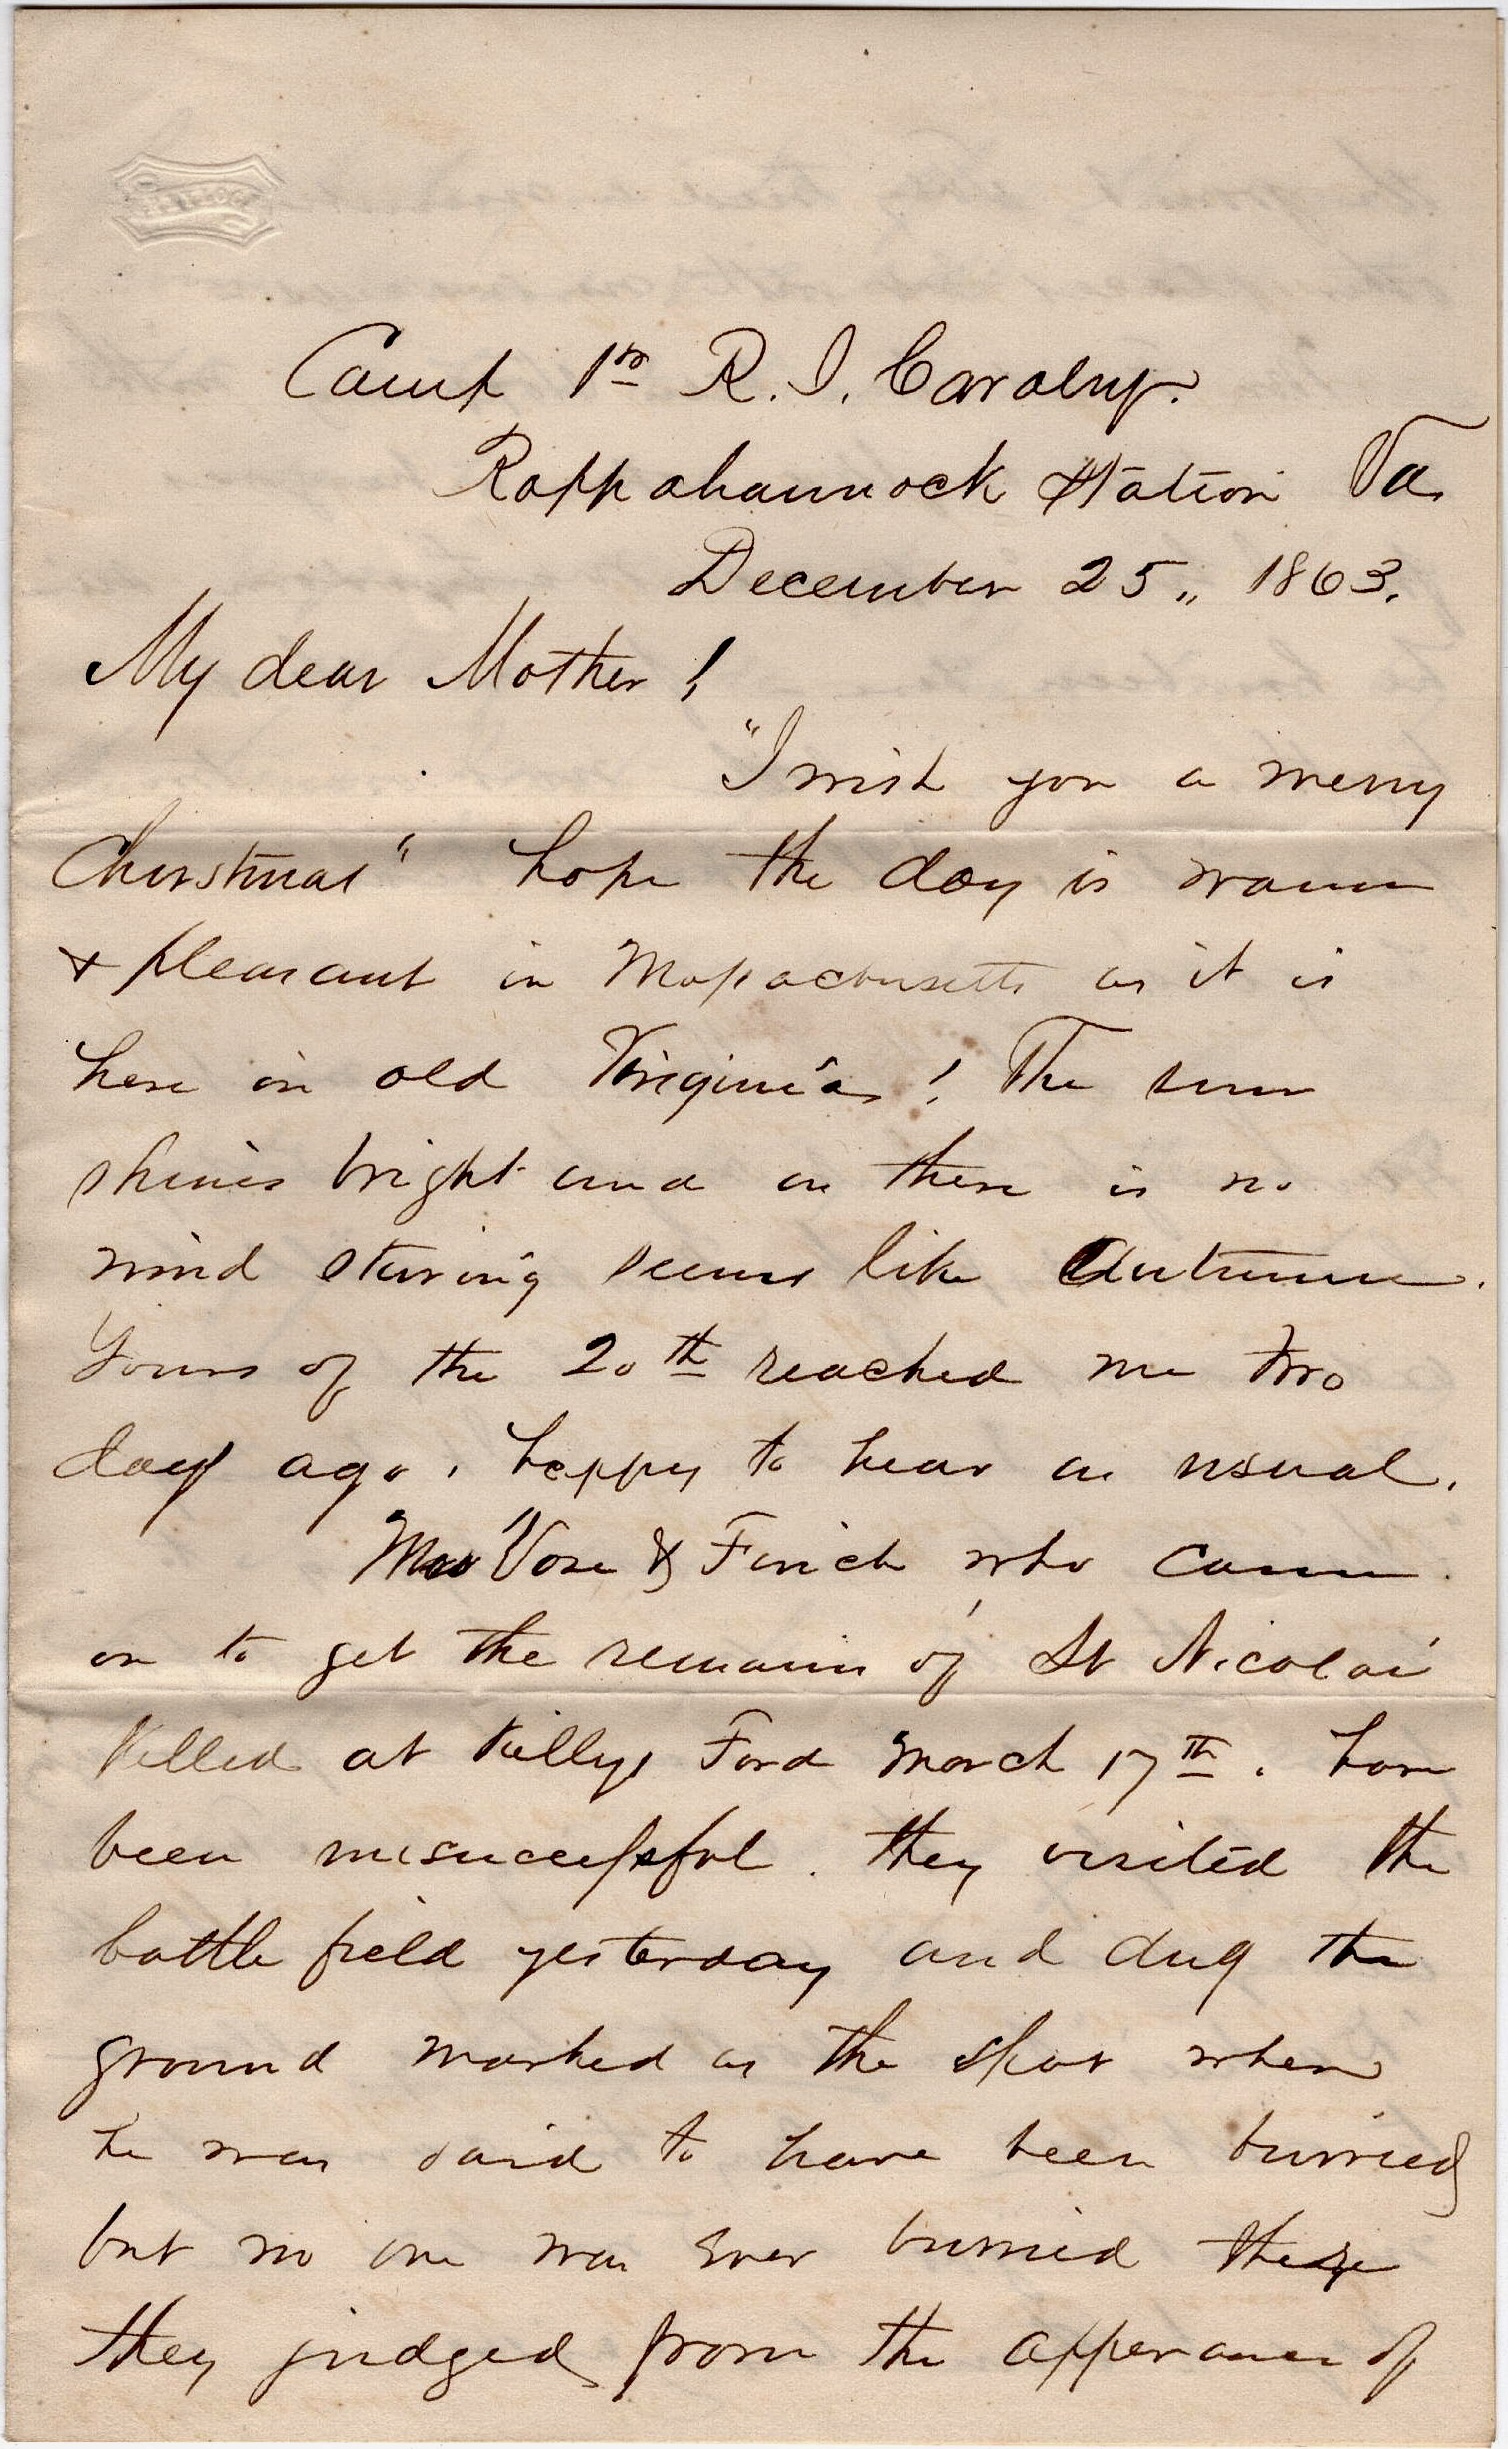 Camp 1st R. I. Cavalry.
Rappahannock Station Va.
December 25,, 1863.
My dear Mother!
"I wish you a merry
Christmas" hope the day is warm
& pleasant in Massachusetts as it is
here in old Virginia! The sun
shines bright and as there is no
wind stirring seems like Autumn.
Yours of the 20th reached me two
days ago, happy to hear as usual.
Vose & Finch who came
on to get the remains of Lt Nicolai
killed at Kellys Ford March 17th. have
been unsuccessful. they visited the
battle field yesterday and dug the
ground marked as the spot where
he was said to have been burried
but no one was ever burried there
they judged from the apperance of